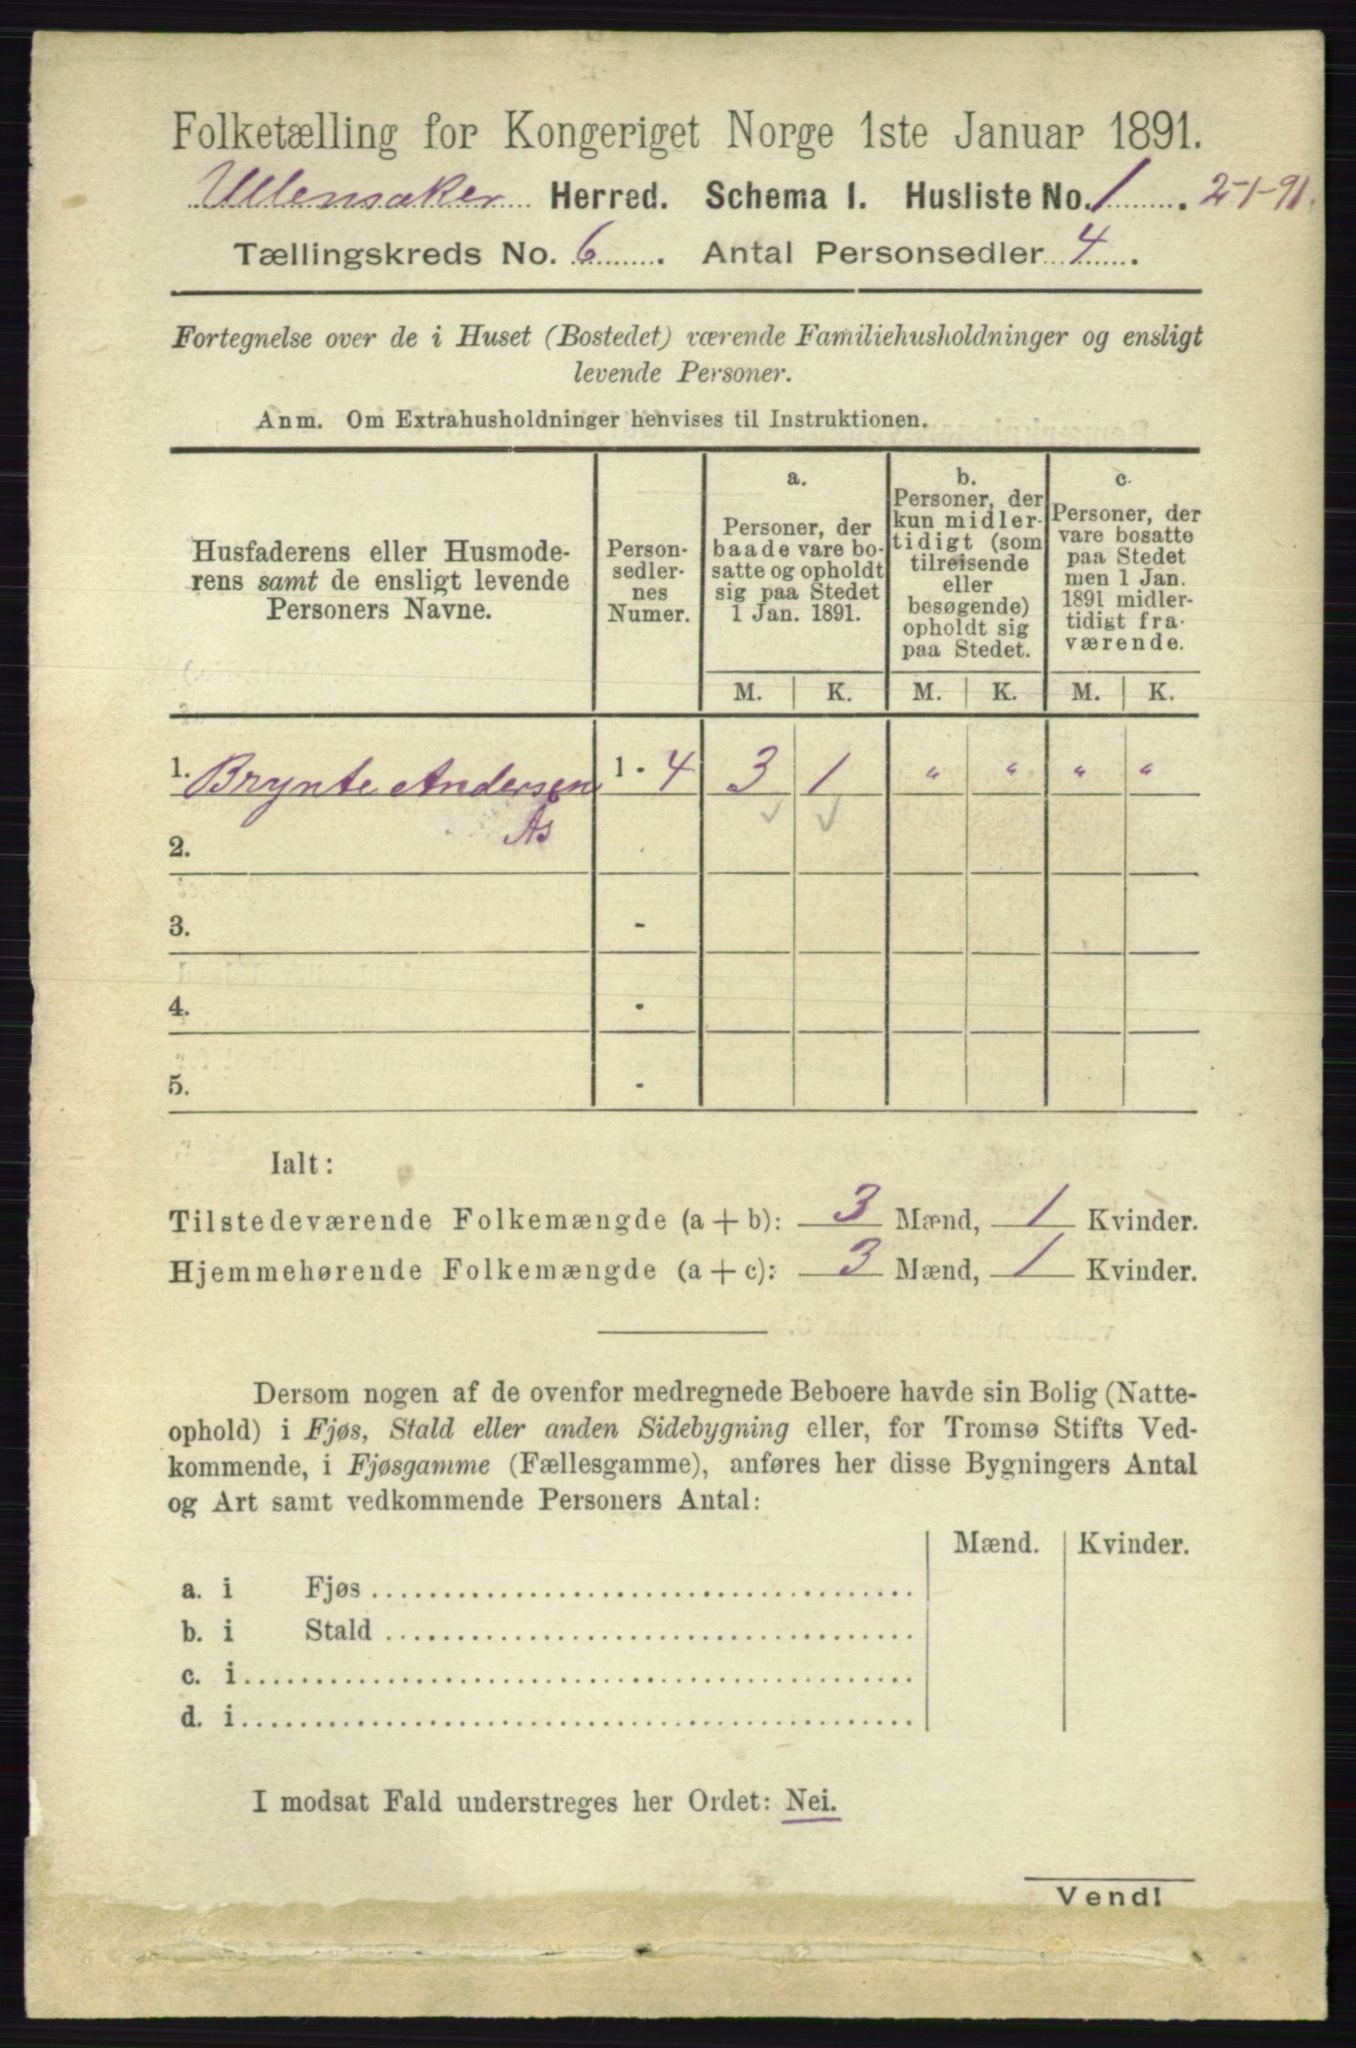 Folketælling for Kongeriget Norge 1ste Januar 1891.
Ullensaker Herred. Schema I. Husliste No. 1. 2-1-91.
Tællingskreds No. 6. Antal Personsedler 4.
Fortegnelse over de i Huset (Bostedet) værende Familiehusholdninger og ensligt
levende Personer.
Anm. Om Extrahusholdninger henvises til Instruktionen.
Husfaderens eller Husmode-
rens samt de ensligt levende
Personers Navne.
Person-
sedler-
nes
Numer.
a.
Personer, der
baade vare bo-
satte og opholdt
sig paa Stedet
1 Jan. 1891.
b.
Personer, der
kun midler-
tidigt (som
tilreisende
eller
besøgende)
opholdt sig
paa Stedet.
c.
Personer, der
vare bosatte
paa Stedet
men 1 Jan.
1891 midler-
tidigt fra-
værende.
M. K. M. K. M. K.
1. Brynte Andersen 1 - 4 3 1 " " " "
As
2.
3. -
4. -
5. -
Ialt:
Tilstedeværende Folkemængde (a + b): 3 Mænd, 1 Kvinder.
Hjemmehørende Folkemængde (a + c): 3 Mænd, 1 Kvinder.
Dersom nogen af de ovenfor medregnede Beboere havde sin Bolig (Natte-
ophold) i Fjøs, Stald eller anden Sidebygning eller, for Tromsø Stifts Ved-
kommende, i Fjøsgamme (Fællesgamme), anføres her disse Bygningers Antal
og Art samt vedkommende Personers Antal:
Mænd. Kvinder.
a. i Fjøs
b. i Stald
c. i
d. i
I modsat Fald understreges her Ordet: Nei.
Vend!